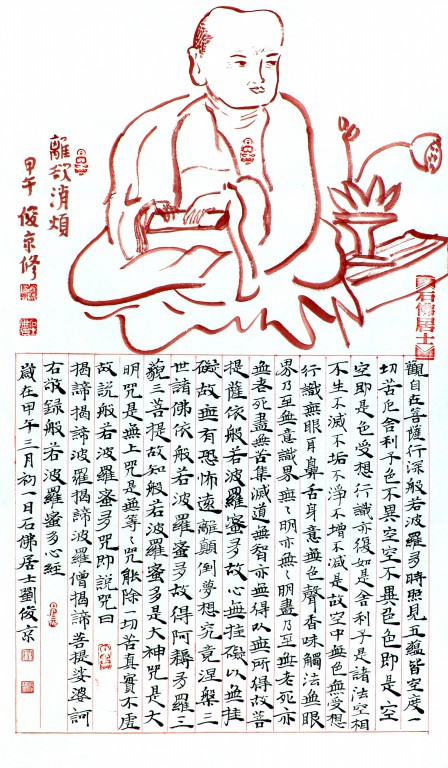 離欲消煩
甲午 俊京修
石佛居士
觀自在菩薩行深般若波羅多時照見五蘊皆空度一
切苦厄舍利子色不異空空不異色色即是空
空即是色受想行識亦復如是舍利子是諸法空相
不生不滅不垢不淨不增不減是故空中無色無受想
行識無眼耳鼻舌身意無色聲香味觸法無眼
界乃至無意識界無〻明亦無〻明盡乃至無老死亦
無老死盡無苦集滅道無智亦無得以無所得故菩
提薩依般若波羅蜜多故心無挂礙以無挂
礙故無有恐怖遠離顛倒夢想究竟涅槃三
世諸佛依般若波羅蜜多故得阿耨多羅三
藐三菩提故知般若波羅蜜多是大神咒是大
明咒是無上咒是無等〻咒能除一切苦真實不虛
故說般若波羅蜜多咒即說咒曰
揭諦揭諦波羅揭諦波羅僧揭諦菩提娑婆訶
右敬録般若波羅蜜多心經
歲在甲午三月初一日石佛居士劉俊京